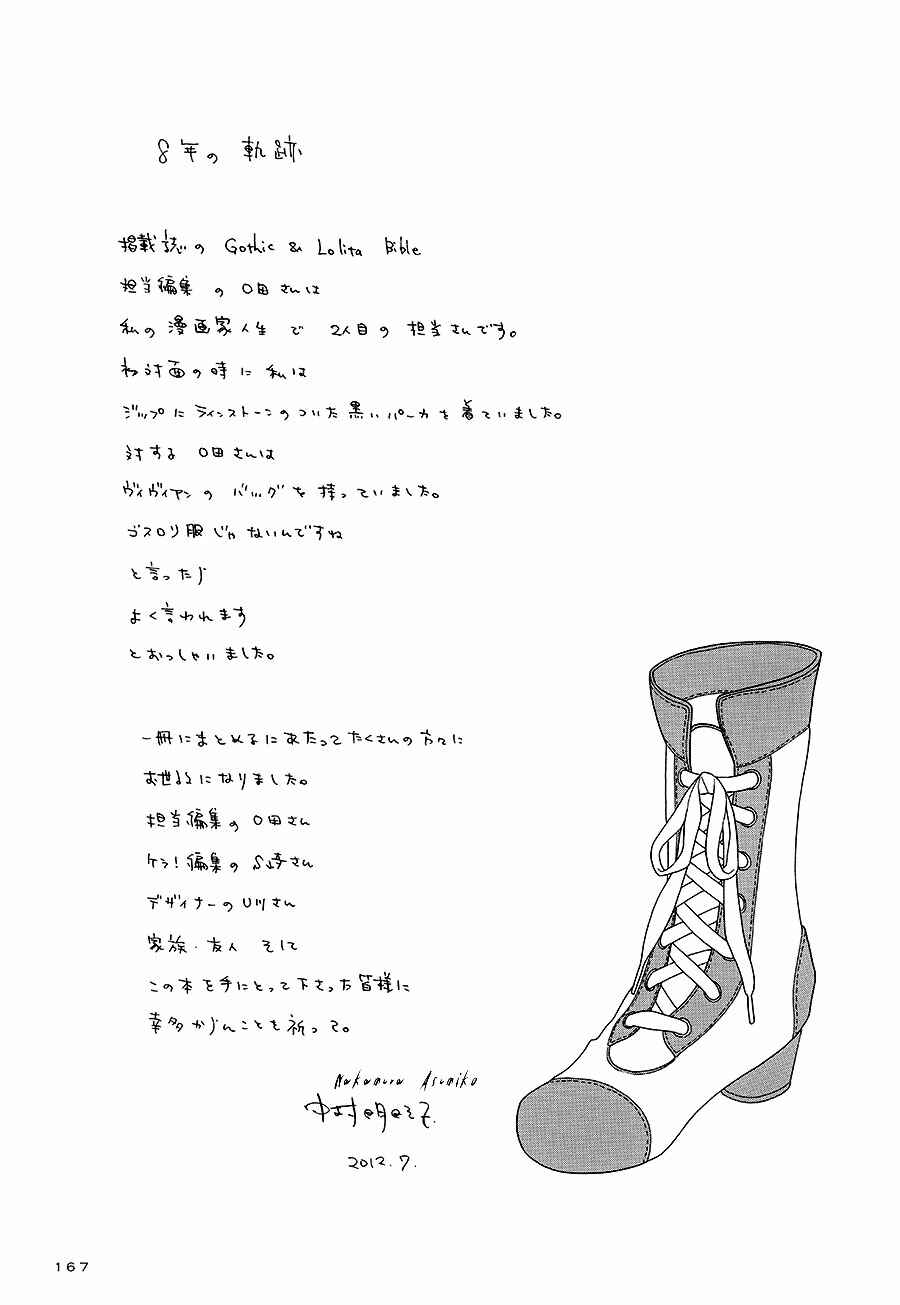 8年の 軌跡
掲載誌の Gothic & Lolita Bible
担当編集 の O田さんは
私の 漫画家人生 で 2人目の 担当さんです。
初対面の時に 私は
ジップに ラインストーンのついた 黒いパーカを 着ていました。
対する O田さんは
ヴィヴィアンの バッグを 持っていました。
ゴスロリ服じゃないんですね
と言ったら
よく言われます
とおっしゃいました。
一冊にまとめるにあたって たくさんの方々に
お世話になりました。
担当編集の O田さん
ケラ!編集の S崎さん
デザイナーのU川さん
家族・友人 そして
この本を手にとって下さった皆様に
幸多からんことを祈って。
Nakamura Asumiko
中村明日美子
2012.7.
167